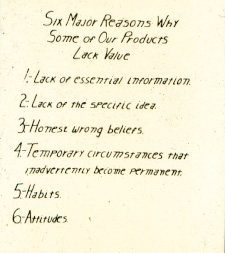 Six Major Reasons Why
Some of Our Products
Lack Value
1-Lack of essential information.
2-Lack of the specific idea.
3-Honest wrong beliefs.
4-Temporary circumstances that
inadvertently become permanent.
5-Habits.
6-Attitudes.